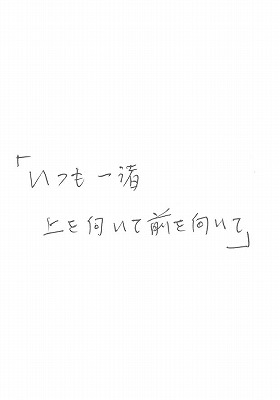 「いつも一緒
上を向いて前を向いて」